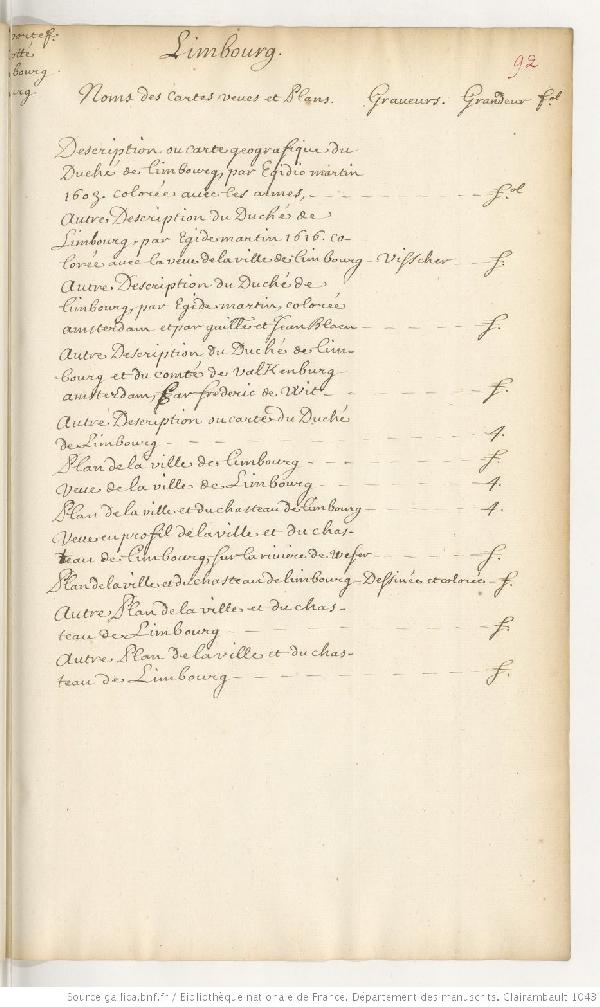 Limbourg.
92
Noms des Cartes veues et Plans. Graveurs. Grandeur fol
Description ou carte geografique du
Duché de limbourg, par Egidio martin
1603. colorée avec les armes, - - - - fol
Autre Description du Duché de
Limbourg, par Egide martin 1616. co-
lorée avec la veue de la ville de limbourg - Visscher - f.
Autre Description du Duché de
limbourg, par Egide martin, colorée
amsterdam et par guille et Jean Blaeu - - - - f.
Autre Description du Duché de lim-
bourg et du comté de Valkenburg
amsterdam, Par frederic de Wit - - - - f.
Autre Description ou carte du Duché
de Limbourg - - - - 4.
Plan de la ville de limbourg - - - - f.
Veue de la ville de Limbourg - - - - 4.
Plan de la ville et du chasteau de limbourg - - - - 4.
Veue en profil de la ville et du chas-
teau de limbourg, sur la riviere de Weser - - - - f.
Plan de la ville et du chasteau de limbourg - Dessinée et colorée - f.
Autre Plan de la ville et du chas-
teau de Limbourg - - - - f.
Autre Plan de la ville et du chas-
teau de Limbourg - - - - f.
Source gallica.bnf.fr / Bibliothèque nationale de France. Département des manuscrits. Clairambault 1043